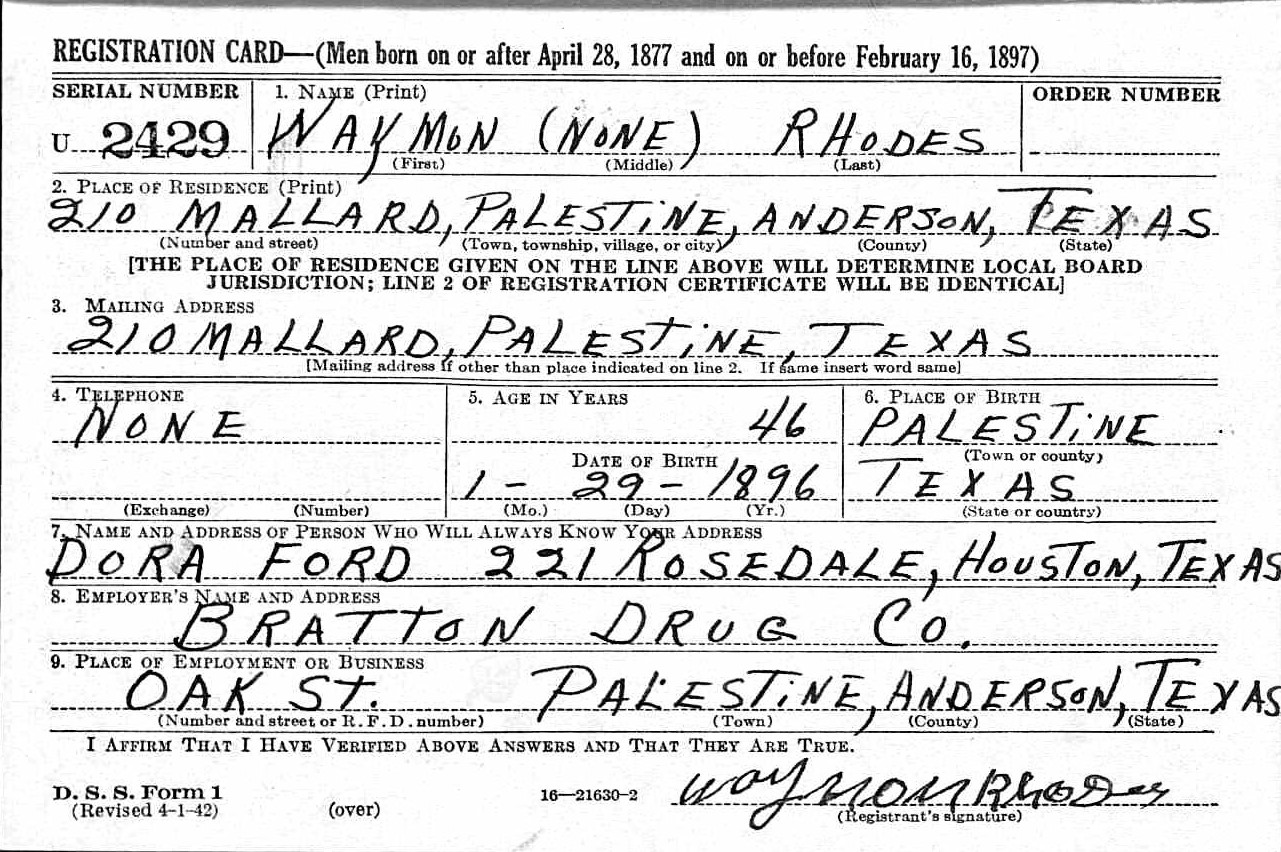 REGISTRATION CARD—(Men born on or after April 28, 1877 and on or before February 16, 1897)
SERIAL NUMBER 1. NAME (Print) ORDER NUMBER
U 2429 WAYMON (NONE) RHODES
(First) (Middle) (Last)
2. PLACE OF RESIDENCE (Print)
210 MALLARD, PALESTINE, ANDERSON, TEXAS
(Number and street) (Town, township, village, or city) (County) (State)
[THE PLACE OF RESIDENCE GIVEN ON THE LINE ABOVE WILL DETERMINE LOCAL BOARD
JURISDICTION; LINE 2 OF REGISTRATION CERTIFICATE WILL BE IDENTICAL]
3. MAILING ADDRESS
210 MALLARD, PALESTINE, TEXAS
[Mailing address if other than place indicated on line 2. If same insert word same]
4. TELEPHONE 5. AGE IN YEARS 6. PLACE OF BIRTH
NONE 46 PALESTINE
(Town or county)
DATE OF BIRTH
1 - 29 - 1896 TEXAS
(Exchange) (Number) (Mo.) (Day) (Yr.) (State or country)
7. NAME AND ADDRESS OF PERSON WHO WILL ALWAYS KNOW YOUR ADDRESS
DORA FORD 221 ROSEDALE, HOUSTON, TEXAS
8. EMPLOYER'S NAME AND ADDRESS
BRATTON DRUG CO.
9. PLACE OF EMPLOYMENT OR BUSINESS
OAK ST. PALESTINE, ANDERSON, TEXAS
(Number and street or R. F. D. number) (Town) (County) (State)
I AFFIRM THAT I HAVE VERIFIED ABOVE ANSWERS AND THAT THEY ARE TRUE.
D. S. S. Form 1
(Revised 4-1-42) (over) 16—21630-2 Waymon Rhodes
(Registrant's signature)